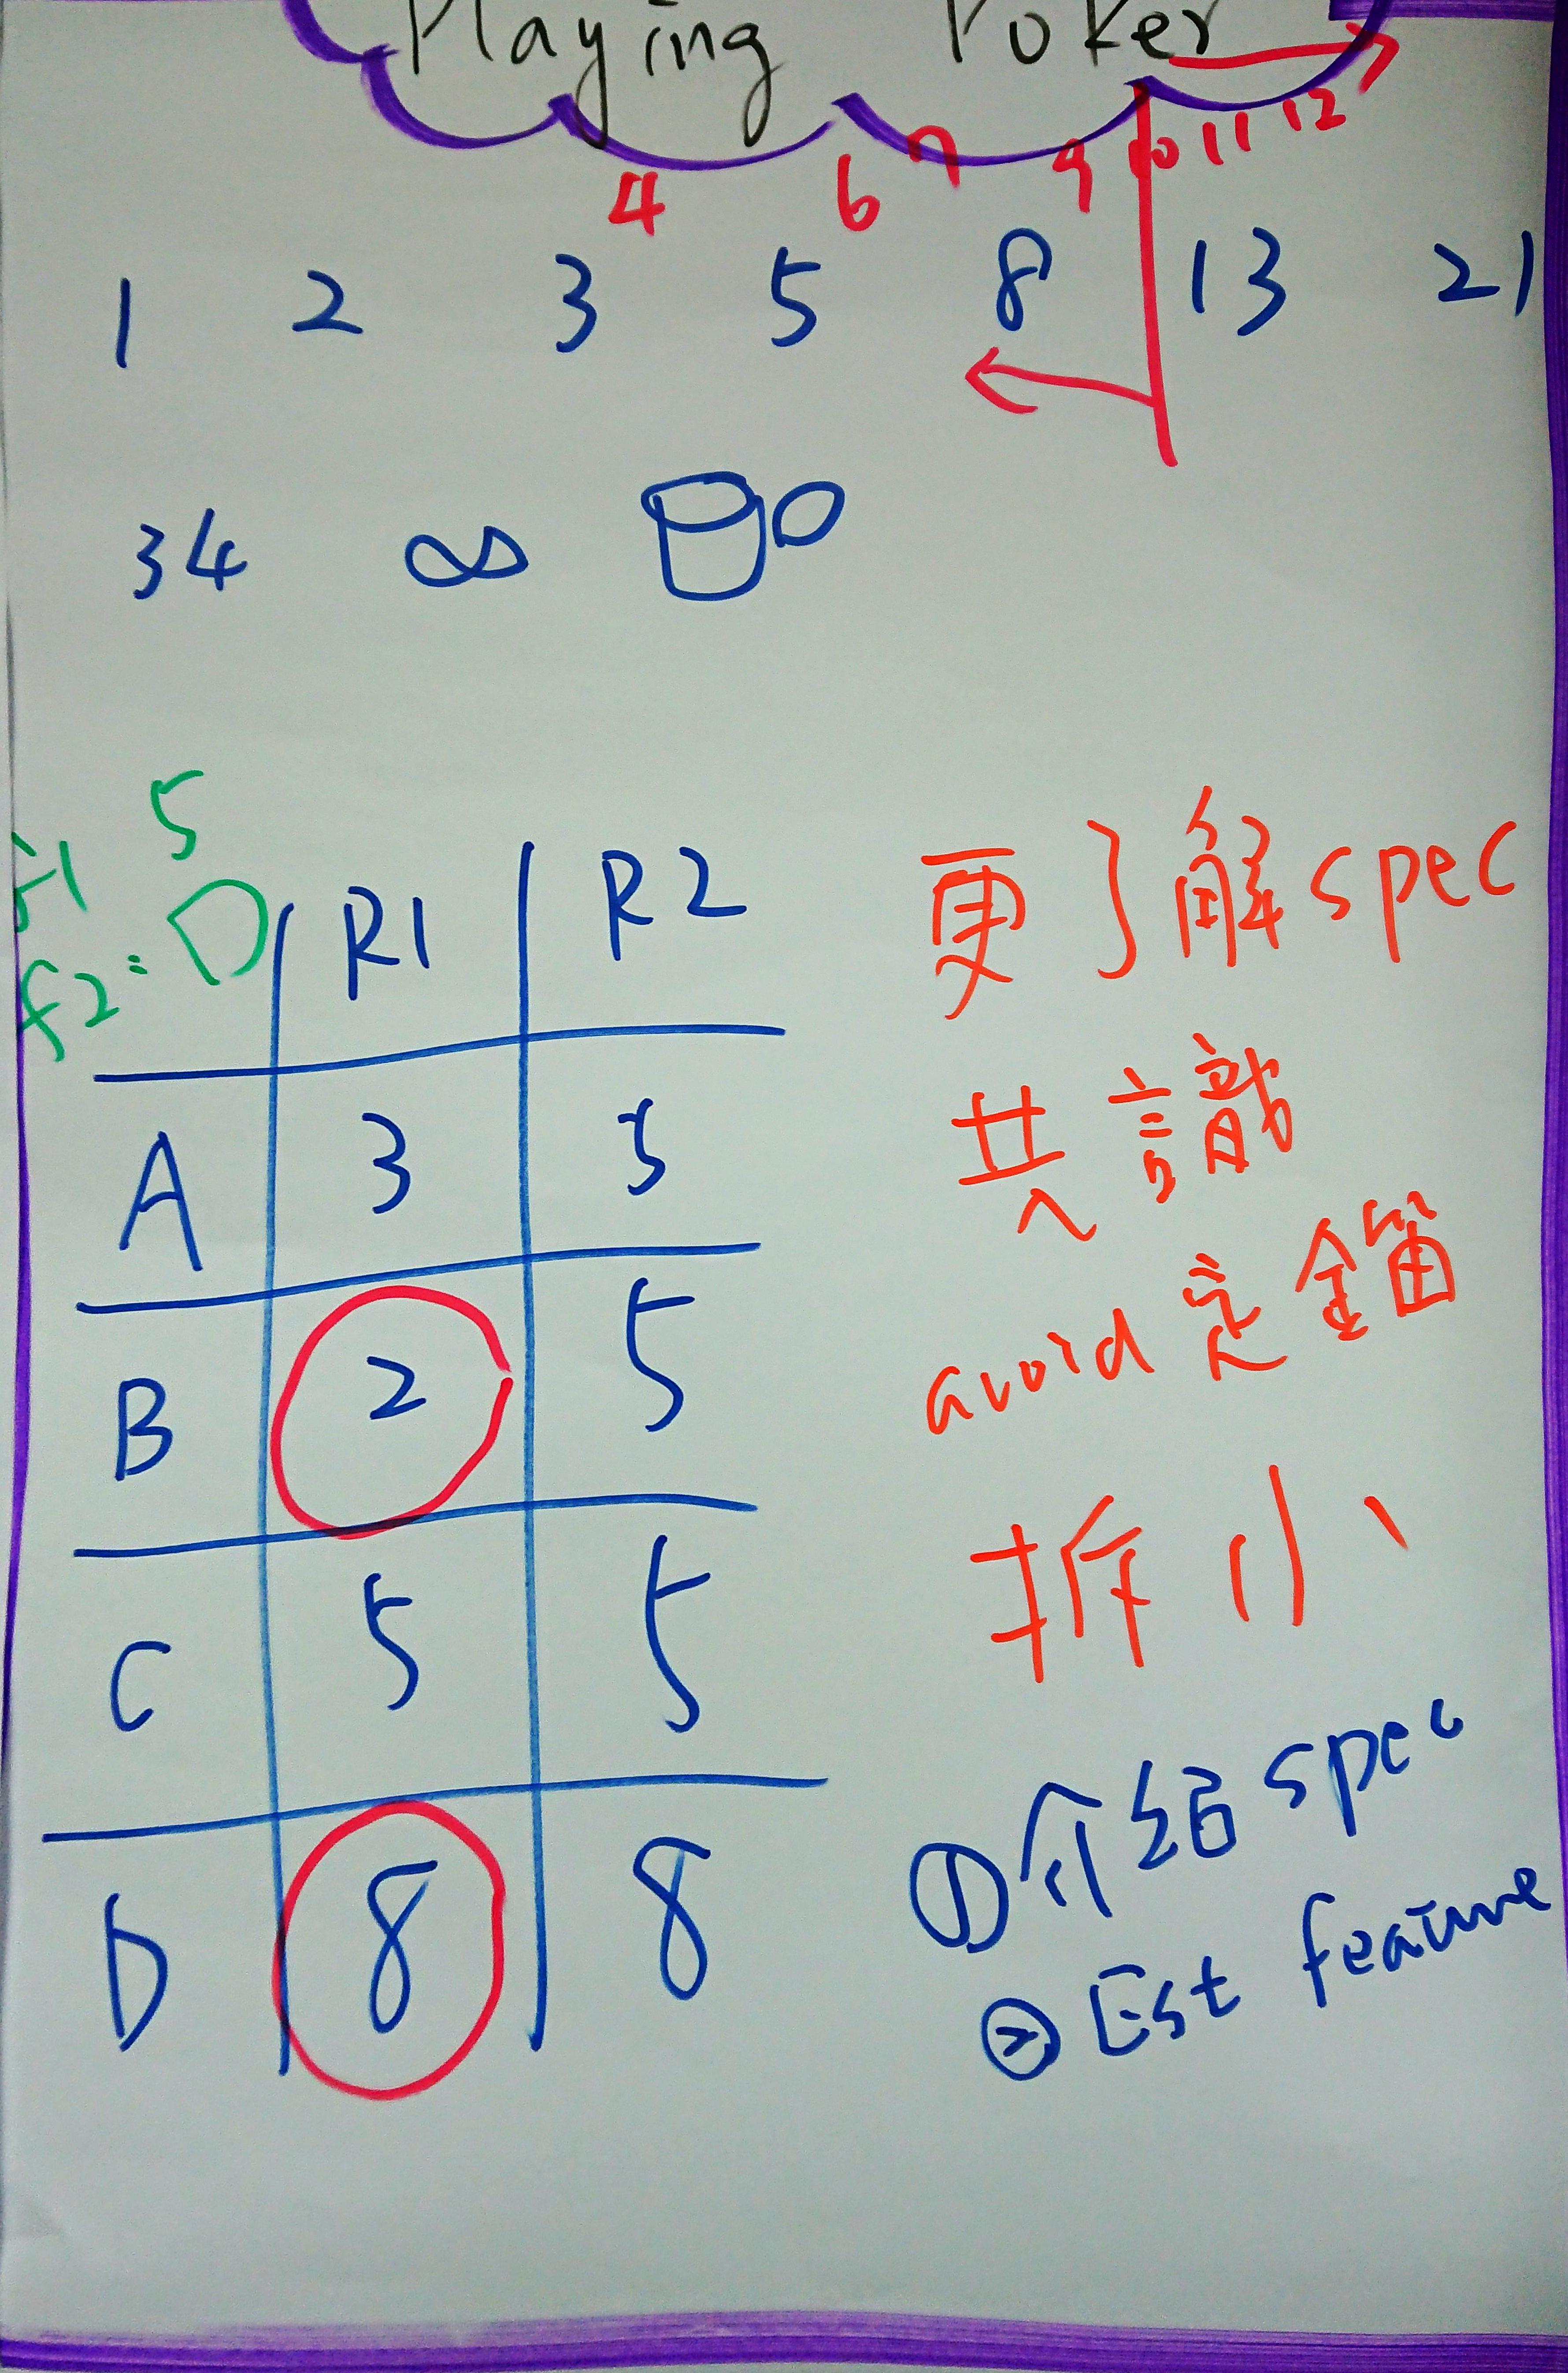 Playing Poker
4 6 7 9 10 11 12
1 2 3 5 8 13 21
34 ∞
5
f1
f2:
R1 R2
A 3 5
B 2 5
C 5 5
D 8 8
更了解spec
共識
avoid 定錨
拆小
①介紹spec
②Est feature